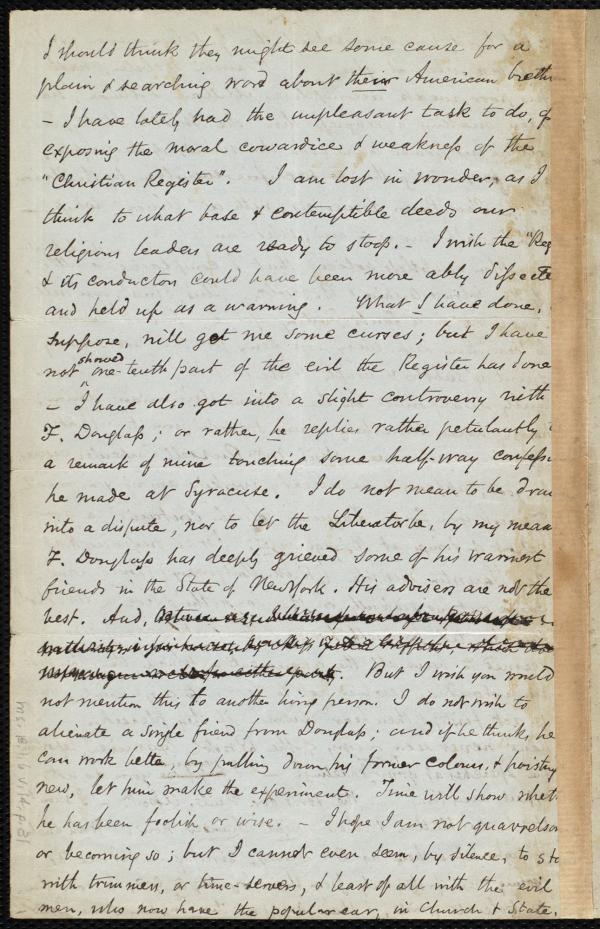 I should think they might see some cause for a
plain & searching word about their American breth
- I have lately had the unpleasant task to do, of
exposing the moral cowardice & weakness of the
"Christian Register". I am lost in wonder, as I
think to what base & contemptible deeds our
religious leaders are ready to stoop. - I wish the "Reg
& its conductors could have been more ably dissecte
and held up as a warning. What I have done, I
suppose, will get me some curses; but I have
not showed one-tenth part of the evil the Register has done
- I have also got into a slight controversy with
F. Douglass; or rather, he replies rather petulantly
a remark of mine touching some half-way confess
he made at Syracuse. I do not mean to be draw
into a dispute, nor to let the Liberator be, by my mean
F. Douglass has deeply grieved some of his warmest
friends in the State of New York. His advisers are not the
best. And,
But I wish you would
not mention this to another living person. I do not wish to
alienate a single friend from Douglass; and if he thinks he
can work better, by pulling down his former colours, & hoisting
new, let him make the experiment. Time will show whet
he has been foolish or wise. - I hope I am not quarrelso
or becoming so; but I cannot even seem, by silence, to sta
with trimmers, or time-servers, & least of all with the evil
men, who now have the popular ear, in Church & State.